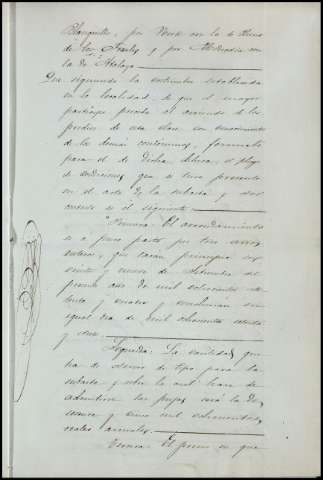 Blanquilla, por Norte con la de Haza
de los Frailes y por Mediodia con
la de Atalaya.
Que siguiendo la costumbre establecida
en la localidad, de que el mayor
participe practica el arriendo de los
predios de esta clase con conocimiento
de los demás condueños, formando
para el de dicha dehesa, el pliego
de condiciones que se tiene presente
en el acto de la subasta y que
consta es el siguiente.
Primera. El arrendamiento
es a puro pasto por tres años
enteros, que darán principio en
veinte y nueve de Setiembre del
presente año de mil ochocientos se-
tenta y cuatro y concluirán en
igual dia de mil ochocientos setenta
y siete.
Segunda. La cantidad que
ha de servir de tipo para la
subasta y sobre la cual han de
admitirse las pujas será la de
y cinco mil ochocientos
reales anuales.
Tercera. El precio en que